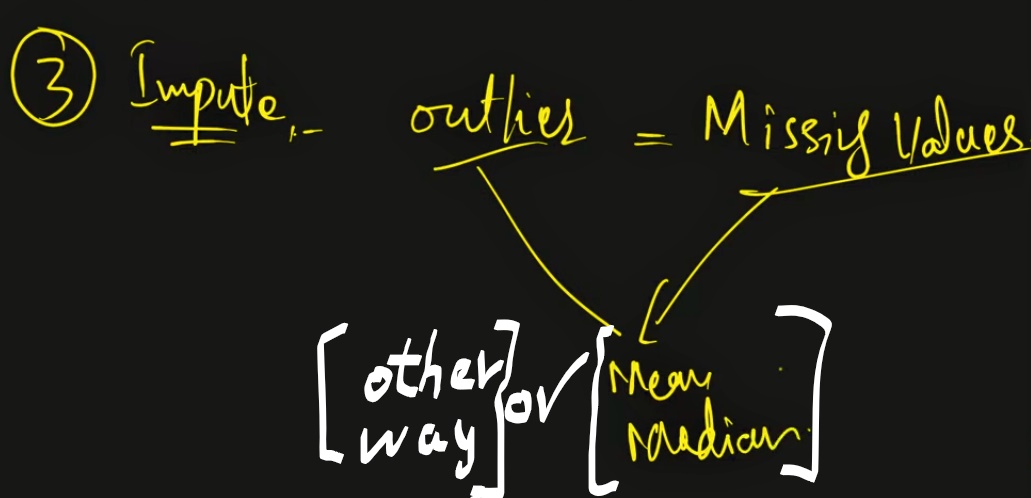 ③ Impute :- outlier = Missing Values
[other way] or [Mean Median]